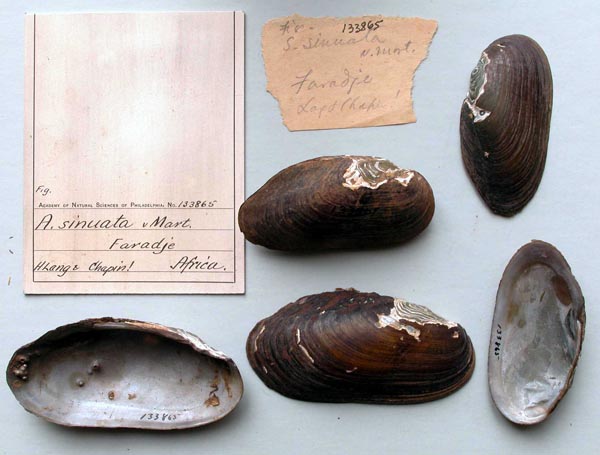 Fig.
ACADEMY OF NATURAL SCIENCES OF PHILADELPHIA. NO. 133865
A. sinuata v Mart.
Faradje
HLang & Chapin! Africa.
133865
S. sinuata
v. Mart.
Faradje
Lang & Chapin!
133865
133865